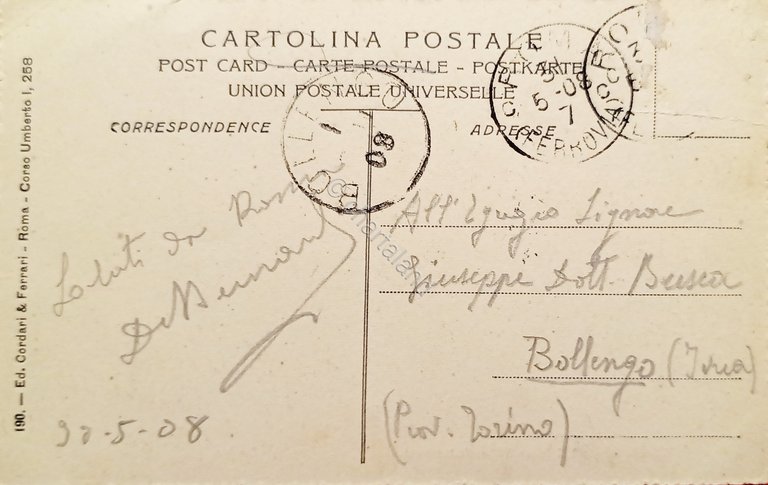 CARTOLINA POSTALE
POST CARD - CARTE POSTALE - POSTKARTE
UNION POSTALE UNIVERSELLE
CORRESPONDENCE
ADRESSE
190. — Ed. Cordari & Ferrari - Roma - Corso Umberto I, 258
BOLLENGO
08
5-08
7
FERROVIA
ROMA
Saluti da Roma
30-5-08
All'Egregio Signor
Giuseppe Dott. Busca
Bollengo (Ivrea)
(Prov. Torino)